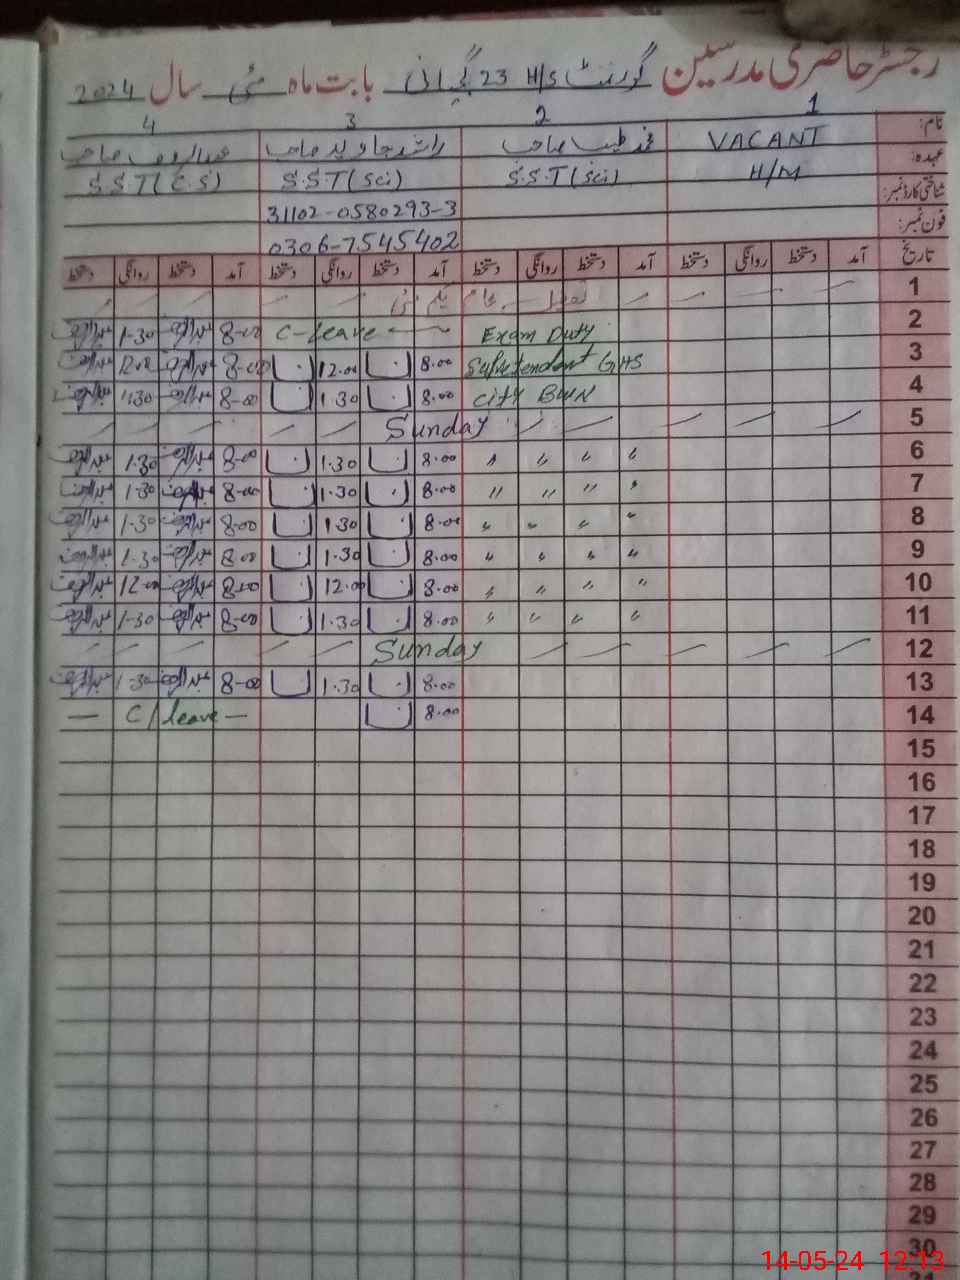 رجسٹر حاضری مدرسین گورنمنٹ H/S 23 گجیانی بابت ماہ مئی سال 2024
1 2 3 4
نام: VACANT محمد طیب صاحب راشد جاوید صاحب عبدالرؤف صاحب
عہدہ: H/M S.S.T (Sci) S.S.T (Sci) S.S.T (C.S)
شناختی کارڈ نمبر: 31102-0580293-3
فون نمبر: 0306-7545402
تاریخ آمد دستخط روانگی دستخط آمد دستخط روانگی دستخط آمد دستخط روانگی دستخط آمد دستخط روانگی دستخط
1 تعطیل یکم مئی
2 Exam Duty C-leave 8-00 1-30
3 GHS 8.00 12.00 8-00
4 City BWN 8.00 1.30 8-00 1.30
5 Sunday
6 " " " " 8.00 1.30 8-00 1.30
7 " " " " 8.00 1.30 8-00 1.30
8 " " " " 8.00 1.30 8-00 1-30
9 " " " " 8.00 1.30 8-00 1.30
10 " " " " 8.00 12.00 8-00 12-00
11 " " " " 8.00 1.30 8-00 1-30
12 Sunday
13 8.00 1.30 8-00 1-30
14 8.00 — C/leave —
15
16
17
18
19
20
21
22
23
24
25
26
27
28
29
30
14-05-24 12:13